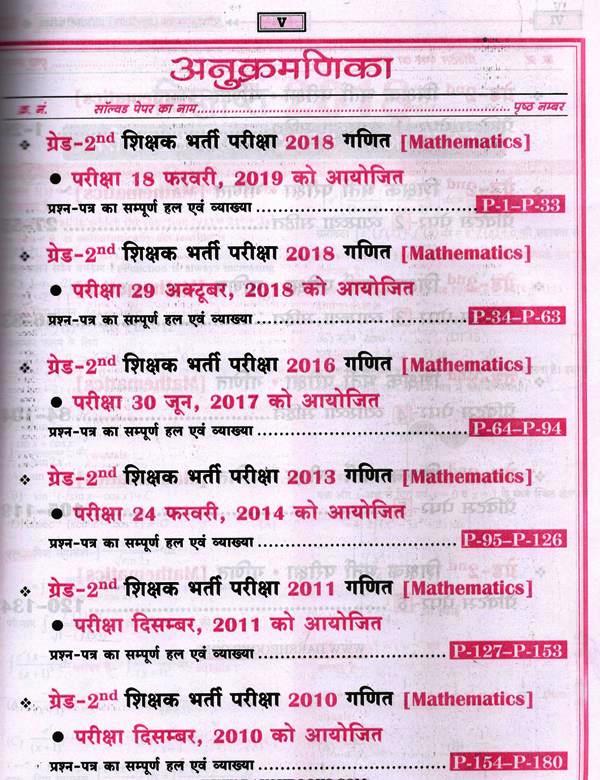 V
अनुक्रमणिका
क्र. नं. सॉल्वड पेपर का नाम.......................................................... पृष्ठ नम्बर
❖ ग्रेड-2nd शिक्षक भर्ती परीक्षा 2018 गणित [Mathematics]
● परीक्षा 18 फरवरी, 2019 को आयोजित
प्रश्न-पत्र का सम्पूर्ण हल एवं व्याख्या .................................. P-1–P-33
❖ ग्रेड-2nd शिक्षक भर्ती परीक्षा 2018 गणित [Mathematics]
● परीक्षा 29 अक्टूबर, 2018 को आयोजित
प्रश्न-पत्र का सम्पूर्ण हल एवं व्याख्या .................................. P-34–P-63
❖ ग्रेड-2nd शिक्षक भर्ती परीक्षा 2016 गणित [Mathematics]
● परीक्षा 30 जून, 2017 को आयोजित
प्रश्न-पत्र का सम्पूर्ण हल एवं व्याख्या .................................. P-64–P-94
❖ ग्रेड-2nd शिक्षक भर्ती परीक्षा 2013 गणित [Mathematics]
● परीक्षा 24 फरवरी, 2014 को आयोजित
प्रश्न-पत्र का सम्पूर्ण हल एवं व्याख्या ................................ P-95–P-126
❖ ग्रेड-2nd शिक्षक भर्ती परीक्षा 2011 गणित [Mathematics]
● परीक्षा दिसम्बर, 2011 को आयोजित
प्रश्न-पत्र का सम्पूर्ण हल एवं व्याख्या .............................. P-127–P-153
❖ ग्रेड-2nd शिक्षक भर्ती परीक्षा 2010 गणित [Mathematics]
● परीक्षा दिसम्बर, 2010 को आयोजित
प्रश्न-पत्र का सम्पूर्ण हल एवं व्याख्या .............................. P-154–P-180